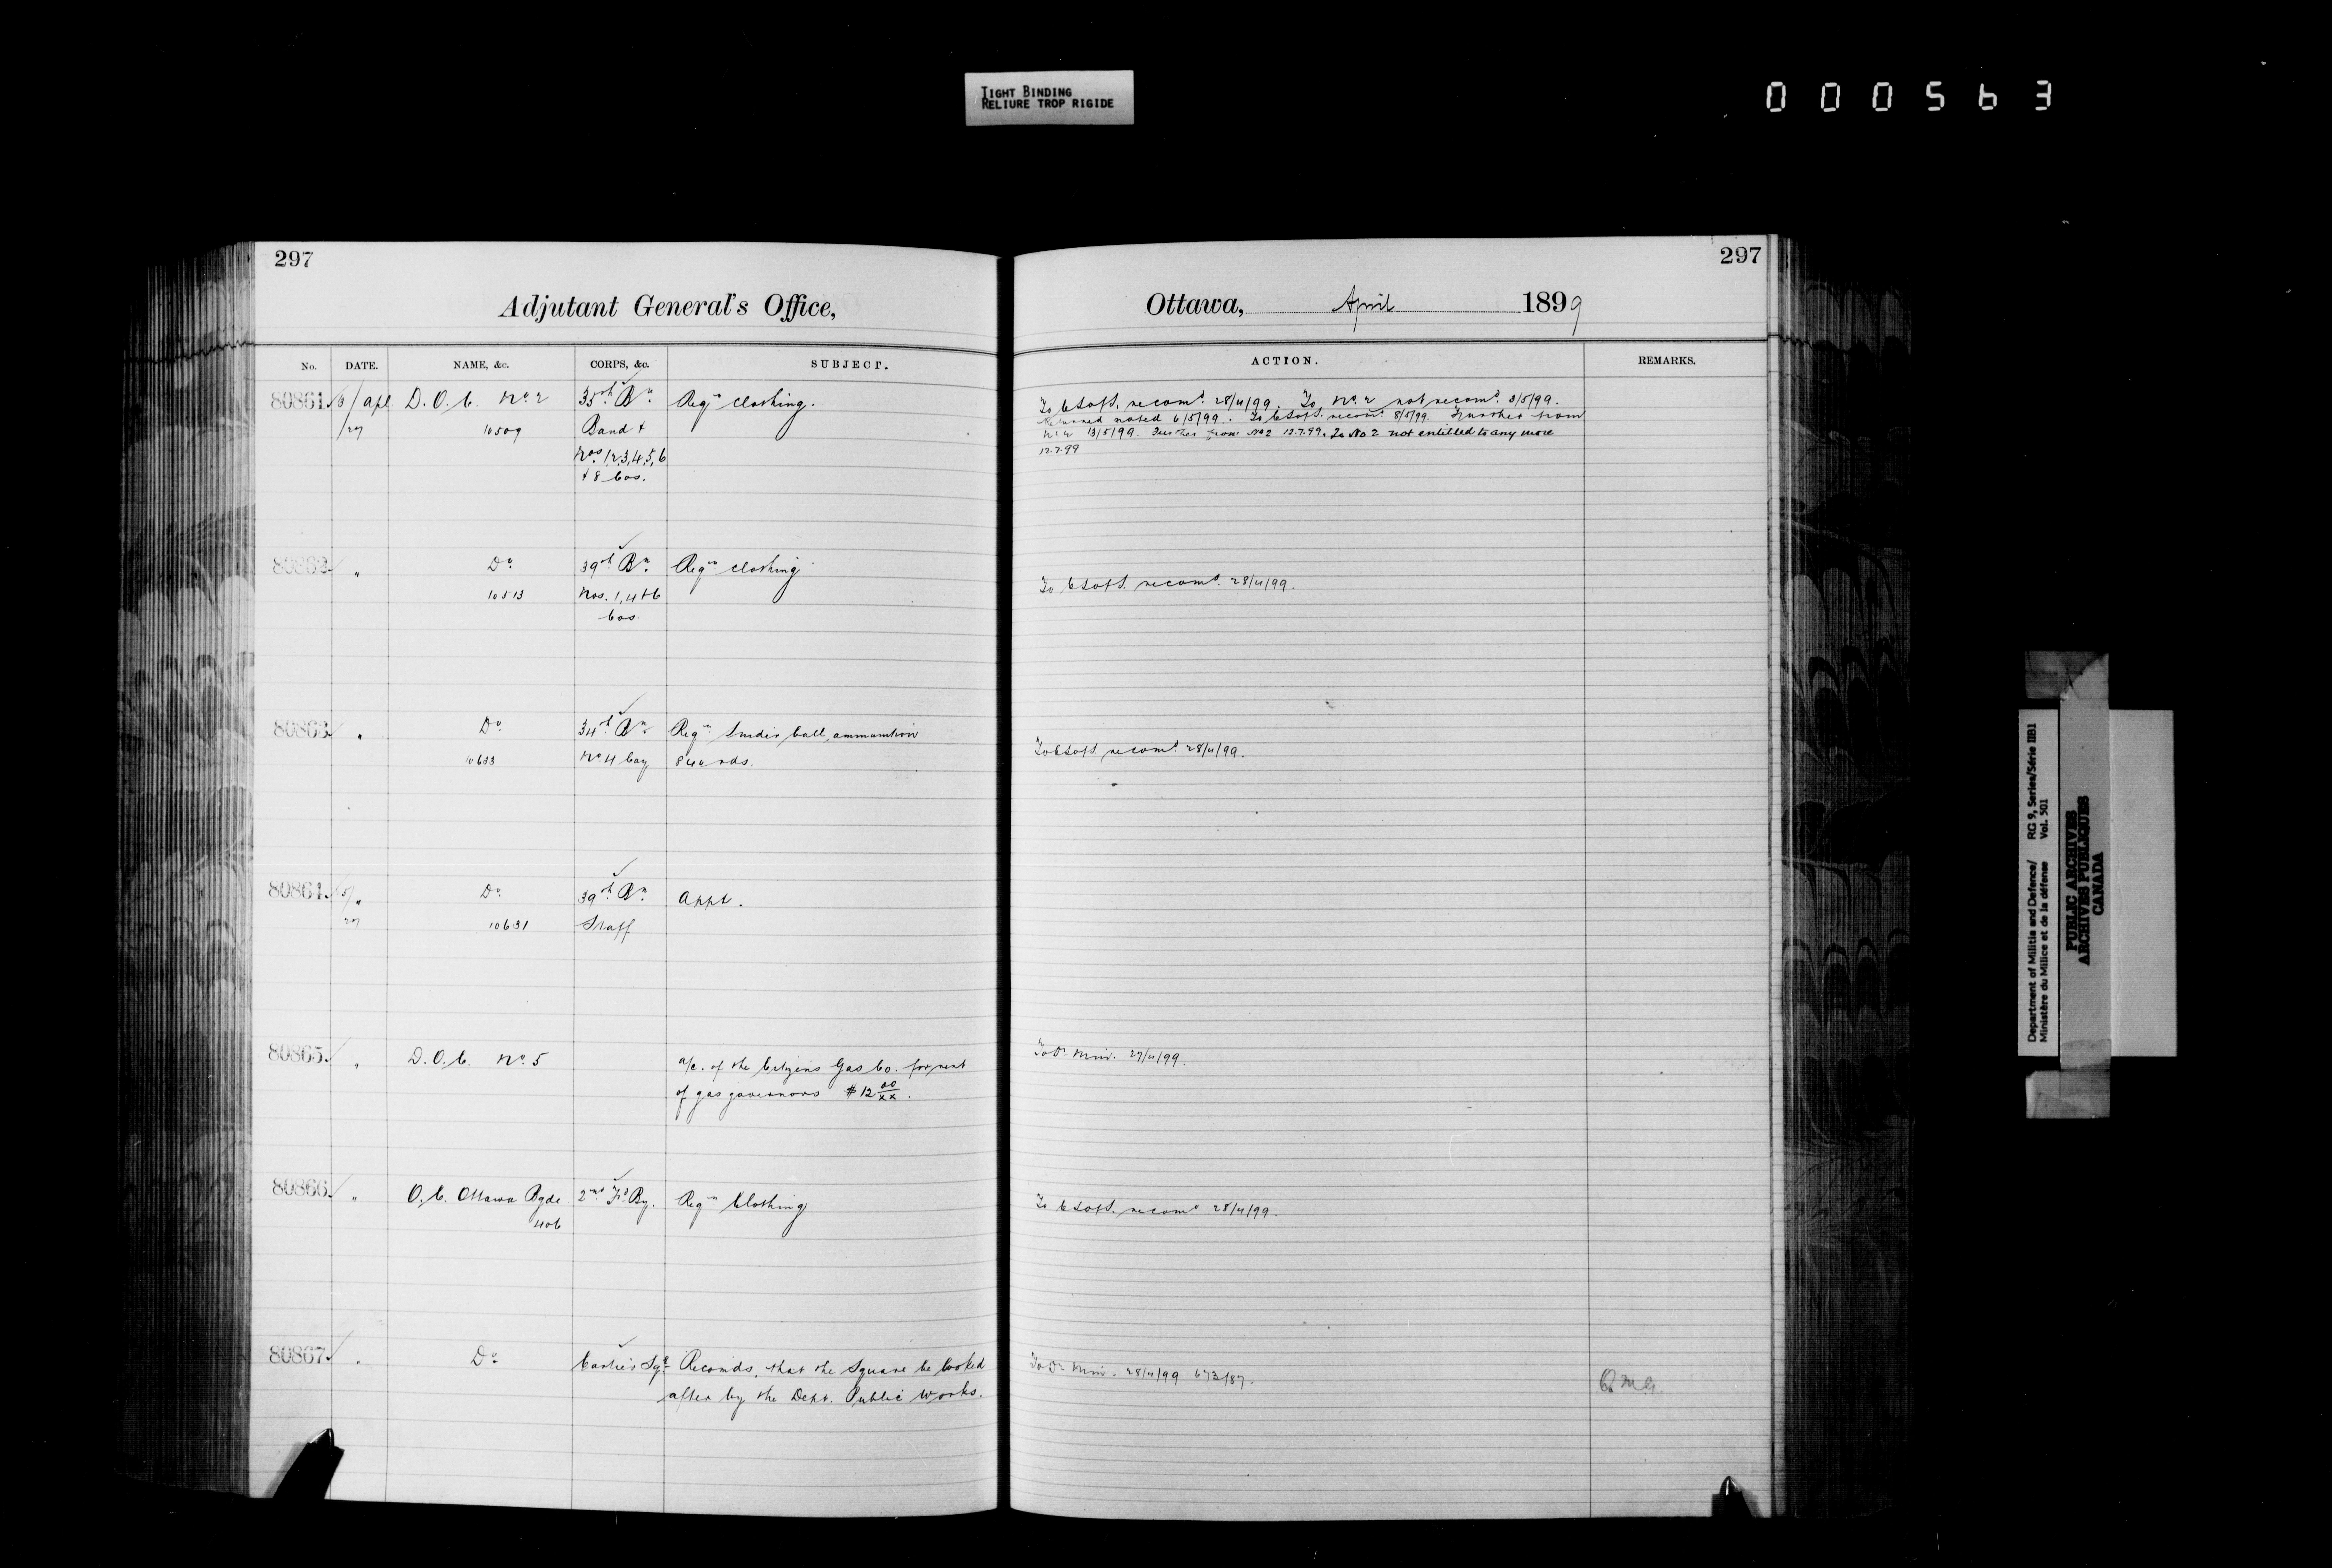 TIGHT BINDING
RELIURE TROP RIGIDE
000563
297
Adjutant General's Office,
No. DATE. NAME, &c. CORPS, &c. SUBJECT.
80861 Apl D.O.C. No. 2 35th Bn. Reqn. clothing.
27 10509 Band &
Nos. 1,2,3,4,5,6
& 8 Cos.
80862 " Do. 39th Bn. Reqn. clothing
10513 Nos. 1, 4 & 6
Cos.
80863 " Do. 34th Bn. Reqn. Snider ball ammunition
10633 No. 4 Coy 840 rds.
80864 " Do. 39th Bn. Appt.
27 10631 Staff
80865 " D.O.C. No. 5 a/c. of the Citizens Gas Co. for rent
of gas governors $12 00/xx.
80866 " O.C. Ottawa Bgde 2nd Fd. By. Reqn. Clothing
406
80867 " Do. Cartier Sqe. Recomds. that the Square be looked
after by the Dept. Public Works.
297
Ottawa, April 1899
ACTION. REMARKS.
To C.S. of S. recomd. 28/4/99. To No. 2 not recomd. 3/5/99.
Returned noted 6/5/99. To C.S. of S. recomd. 8/5/99. Further from
No. 2 13/5/99. Further from No 2 12.7.99. To No. 2 not entitled to any more
12.7.99
To C.S. of S. recomd. 28/4/99.
To C.S. of S. recomd. 28/4/99.
To D. Min. 27/4/99.
To C.S. of S. recomd. 28/4/99.
To D. Min. 28/4/99 673/87.
Q.M.G.
Department of Militia and Defence/ RG 9, Series/Série IIB1
Ministère du Milice et de la défense Vol. 501
PUBLIC ARCHIVES
ARCHIVES PUBLIQUES
CANADA